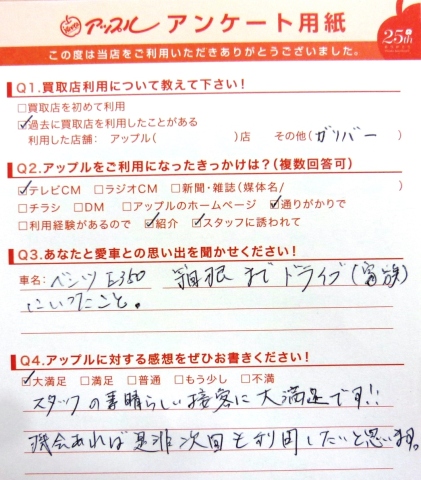 アップル アンケート用紙
25th
この度は当店をご利用いただきありがとうございました。
Q1.買取店利用について教えて下さい!
□買取店を初めて利用
☑過去に買取店を利用したことがある
利用した店舗: アップル( )店 その他(ガリバー)
Q2.アップルをご利用になったきっかけは?(複数回答可)
☑テレビCM □ラジオCM □新聞・雑誌(媒体名/ )
□チラシ □DM □アップルのホームページ ☑通りがかりで
□利用経験があるので ☑紹介 ☑スタッフに誘われて
Q3.あなたと愛車との思い出を聞かせください!
車名:ベンツE350 箱根までドライブ(家族)
にいったこと。
Q4.アップルに対する感想をぜひお書きください!
☑大満足 □満足 □普通 □もう少し □不満
スタッフの素晴らしい接客に大満足です!!
機会あれば是非次回も利用したいと思います。